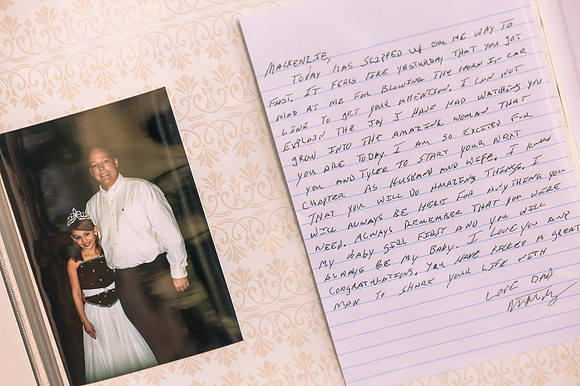 MACKENZIE,
TODAY HAS SLIPPED UP ON ME WAY TO
FAST. IT FEELS LIKE YESTERDAY THAT YOU GOT
MAD AT ME FOR BLOWING THE HORN IN CAR
LINE TO GET YOUR ATTENTION. I CAN NOT
EXPLAIN THE JOY I HAVE HAD WATCHING YOU
GROW INTO THE AMAZING WOMAN THAT
YOU ARE TODAY. I AM SO EXCITED FOR
YOU AND TYLER TO START YOUR NEXT
CHAPTER AS HUSBAND AND WIFE. I KNOW
THAT YOU WILL DO AMAZING THINGS. I
WILL ALWAYS BE HERE FOR ANYTHING YOU
NEED. ALWAYS REMEMBER THAT YOU WERE
MY BABY GIRL FIRST AND YOU WILL
ALWAYS BE MY BABY. I LOVE YOU AND
CONGRATULATIONS. YOU HAVE PICKED A GREAT
MAN TO SHARE YOUR LIFE WITH
LOVE DAD